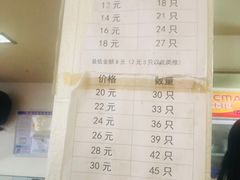 12元 18只
14元 21只
16元 24只
18元 27只
最低金额8元(2元3只以此类推)
价格 数量
20元 30只
22元 33只
24元 36只
26元 39只
28元 42只
30元 45只
CMA